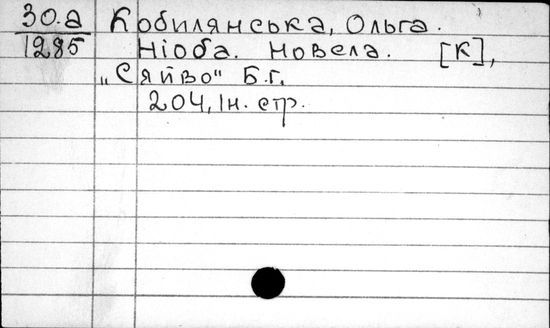 30.а Кобилянська, Ольга.
1285 Ніоба. Новела. [К],
„Сяйво" Б.г.
204, Ін. стр.